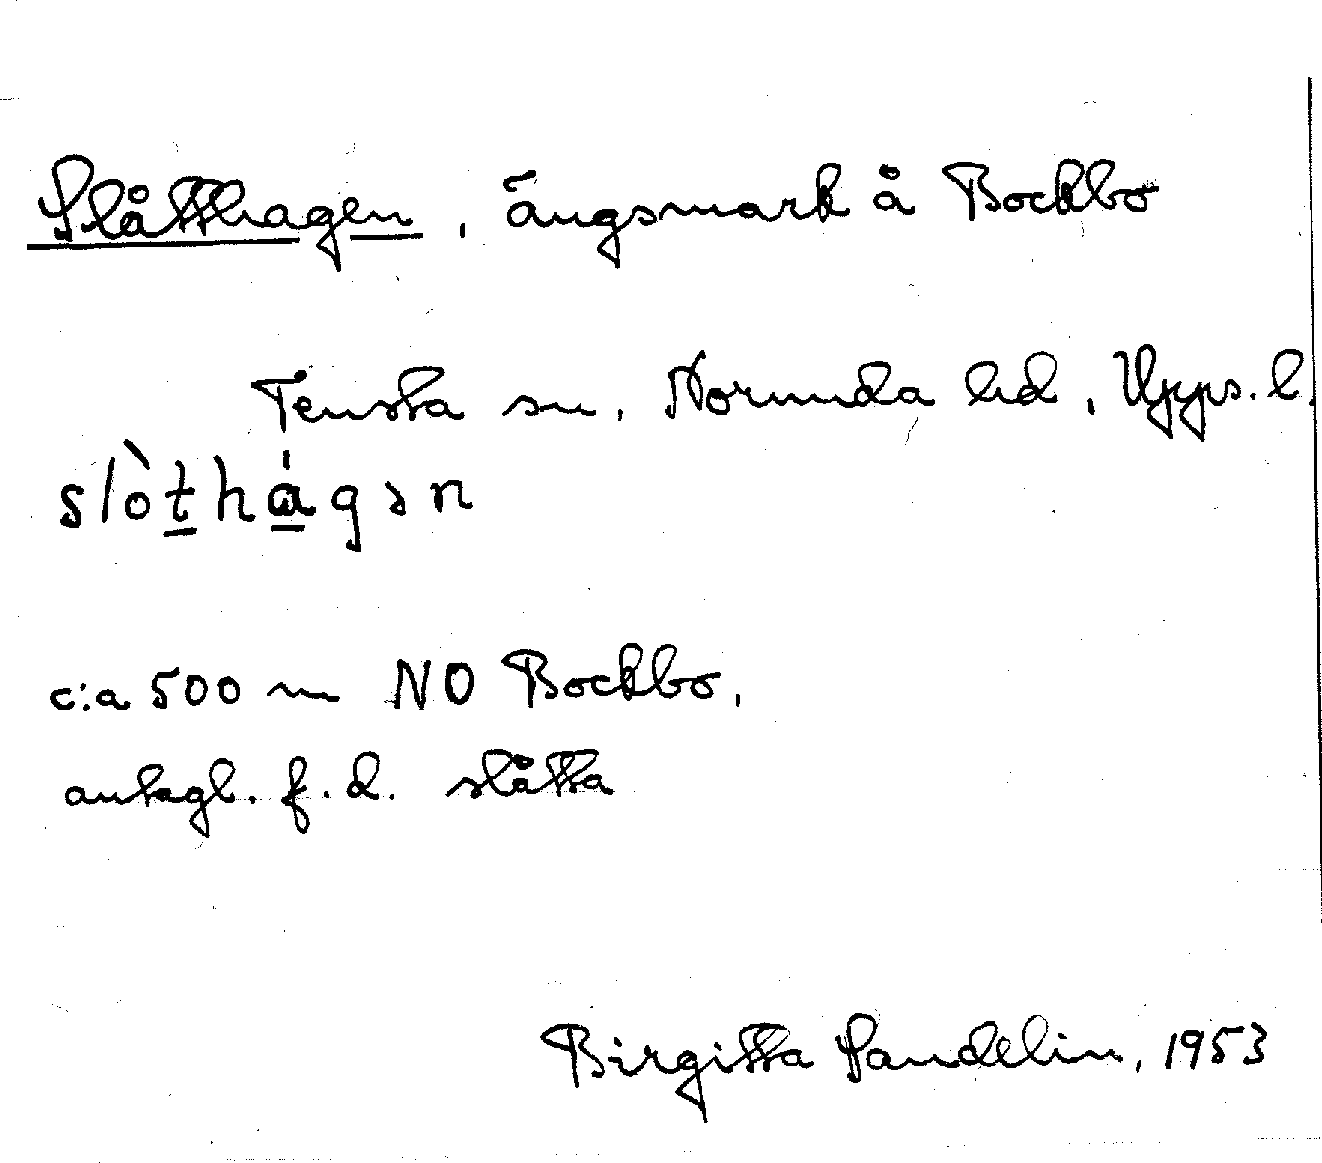 Slåtthagen, ängsmark å Bockbo
Tensta sn, Norunda hd, Upps. l.
slòt̠há̠gən
c:a 500 m NO Bockbo,
antagl. f.d. slåtta
Birgitta Sandelin, 1953